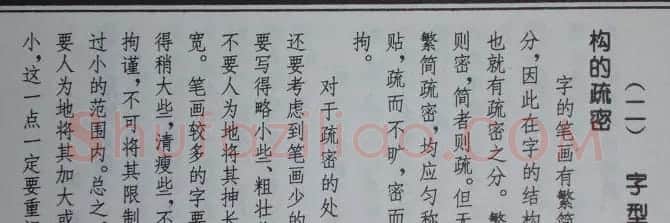 （二） 字型
构的疏密
字的笔画有繁简
分，因此在字的结构
也就有疏密之分。繁
则密，简者则疏。但无
繁简疏密，均应匀称
贴，疏而不旷，密而
拘。
对于疏密的处
还要考虑到笔画少的
要写得略小些、粗壮
不要人为地将其抻长
宽。笔画较多的字要
得稍大些，清瘦些，不
拘谨，不可将其限制
过小的范围内。总之，
要人为地将其加大或
小，这一点一定要重
Shufaziliao.com